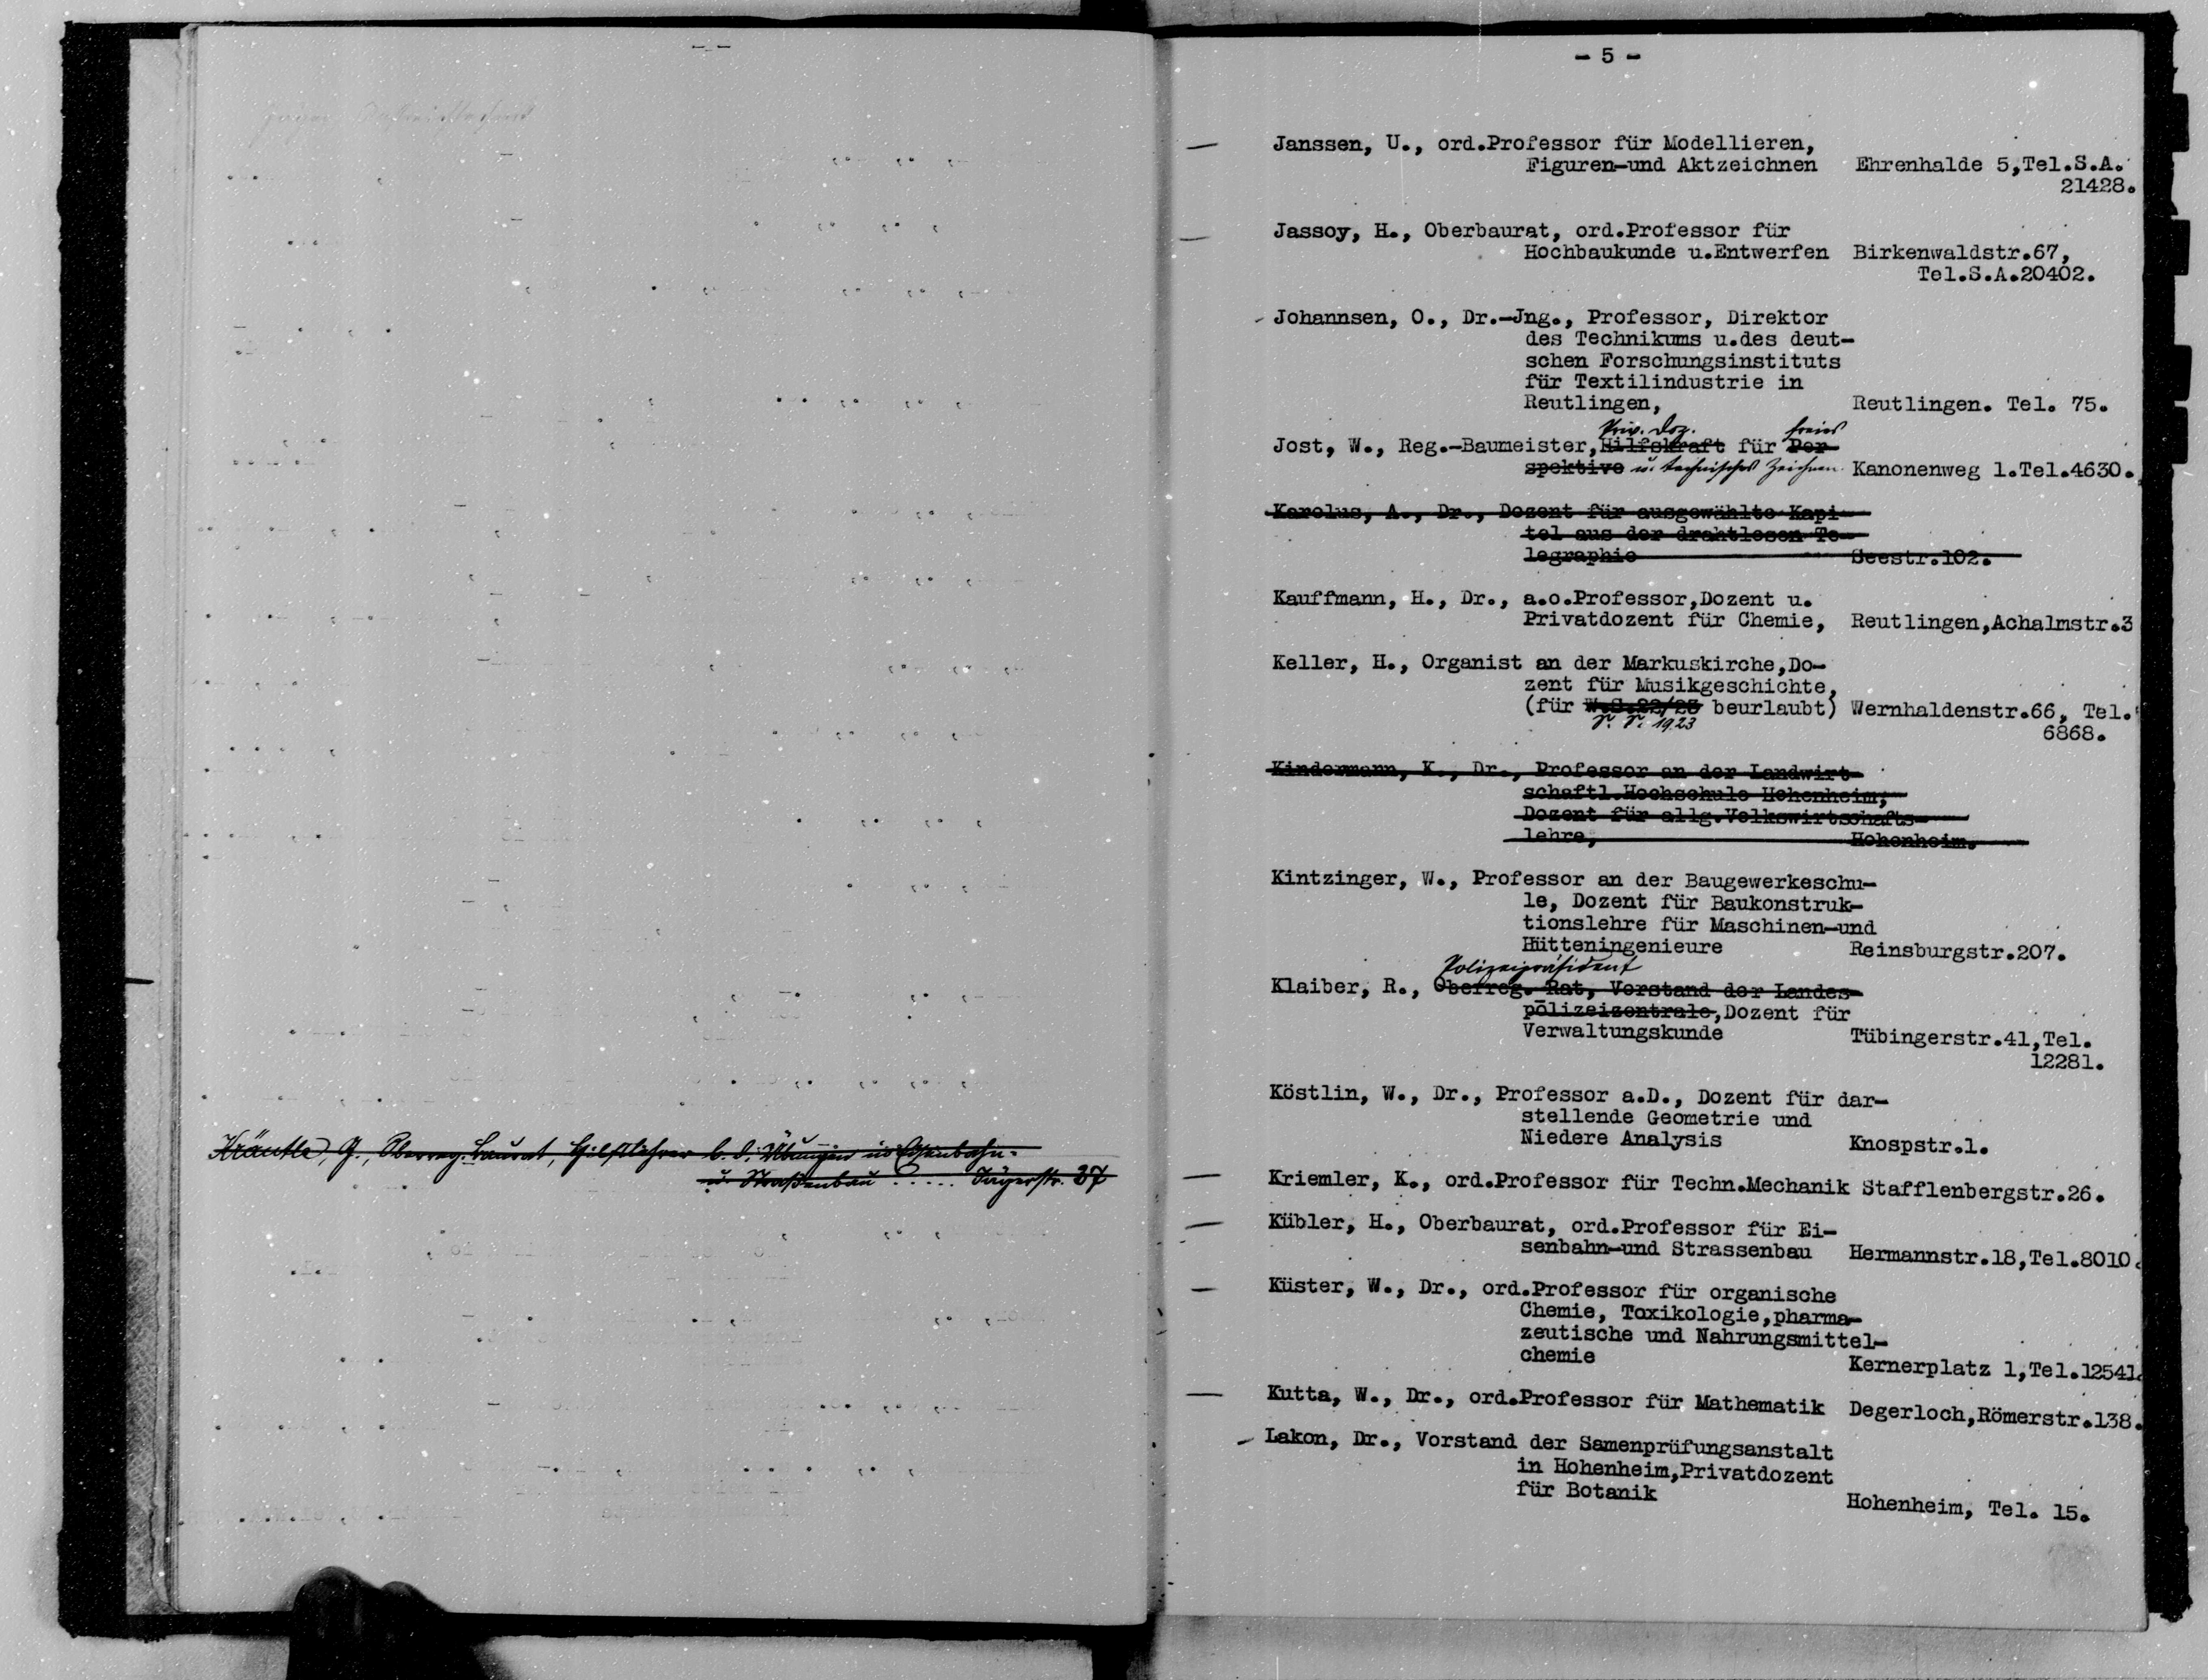 Kräutle, G., Oberreg. Baurat, Hilfslehrer b. d. Übungen im Eisenbahn-
u. Straßenbau ..... Jägerstr. 27
- 5 -
Janssen, U., ord.Professor für Modellieren,
Figuren-und Aktzeichnen Ehrenhalde 5,Tel.S.A.
21428.
Jassoy, H., Oberbaurat, ord.Professor für
Hochbaukunde u.Entwerfen Birkenwaldstr.67,
Tel.S.A.20402.
Johannsen, O., Dr.-Jng., Professor, Direktor
des Technikums u.des deut-
schen Forschungsinstituts
für Textilindustrie in
Reutlingen, Reutlingen. Tel. 75.
Priv. Doz. freies
Jost, W., Reg.-Baumeister,Hilfskraft für Per-
spektive u. technisches Zeichnen. Kanonenweg 1.Tel.4630.
Karolus, A., Dr., Dozent für ausgewählte Kapi-
tel aus der drahtlosen Te-
legraphie Seestr.102.
Kauffmann, H., Dr., a.o.Professor,Dozent u.
Privatdozent für Chemie, Reutlingen,Achalmstr.3
Keller, H., Organist an der Markuskirche,Do-
zent für Musikgeschichte,
(für W.S.22/23 beurlaubt) Wernhaldenstr.66, Tel.
S. S. 1923 6868.
Kindermann, K., Dr., Professor an der Landwirt-
schaftl.Hochschule Hohenheim,
Dozent für allg.Volkswirtschafts-
lehre, Hohenheim.
Kintzinger, W., Professor an der Baugewerkeschu-
le, Dozent für Baukonstruk-
tionslehre für Maschinen-und
Hütteningenieure Reinsburgstr.207.
Polizeipräsident
Klaiber, R., Oberreg. Rat, Vorstand der Landes-
polizeizentrale,Dozent für
Verwaltungskunde Tübingerstr.41,Tel.
12281.
Köstlin, W., Dr., Professor a.D., Dozent für dar-
stellende Geometrie und
Niedere Analysis Knospstr.1.
Kriemler, K., ord.Professor für Techn.Mechanik Stafflenbergstr.26.
Kübler, H., Oberbaurat, ord.Professor für Ei-
senbahn-und Strassenbau Hermannstr.18,Tel.8010.
Küster, W., Dr., ord.Professor für organische
Chemie, Toxikologie,pharma-
zeutische und Nahrungsmittel-
chemie Kernerplatz 1,Tel.12541.
Kutta, W., Dr., ord.Professor für Mathematik Degerloch,Römerstr.138.
Lakon, Dr., Vorstand der Samenprüfungsanstalt
in Hohenheim,Privatdozent
für Botanik Hohenheim, Tel. 15.